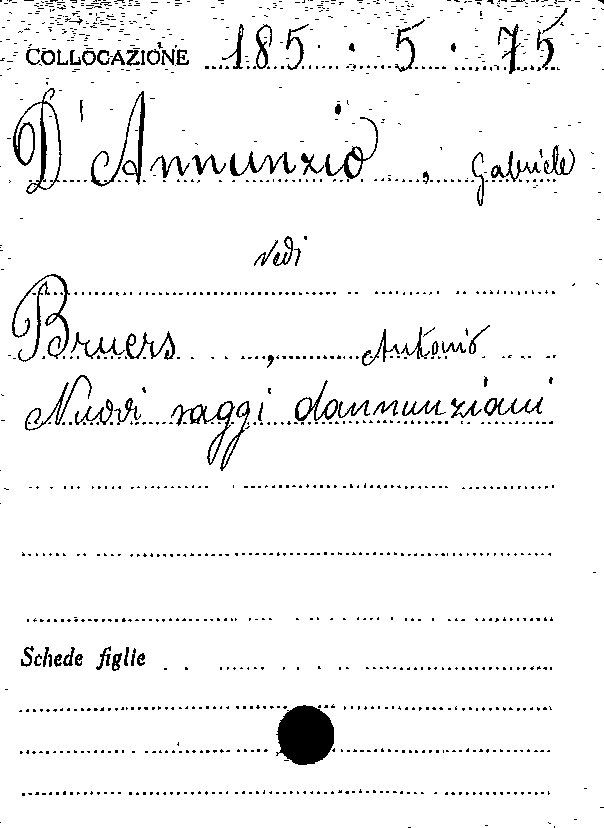 COLLOCAZIONE 185. 5. 75
D'Annunzio, Gabriele
vedi
Bruers, Antonio
Nuovi raggi dannunziani
Schede figlie